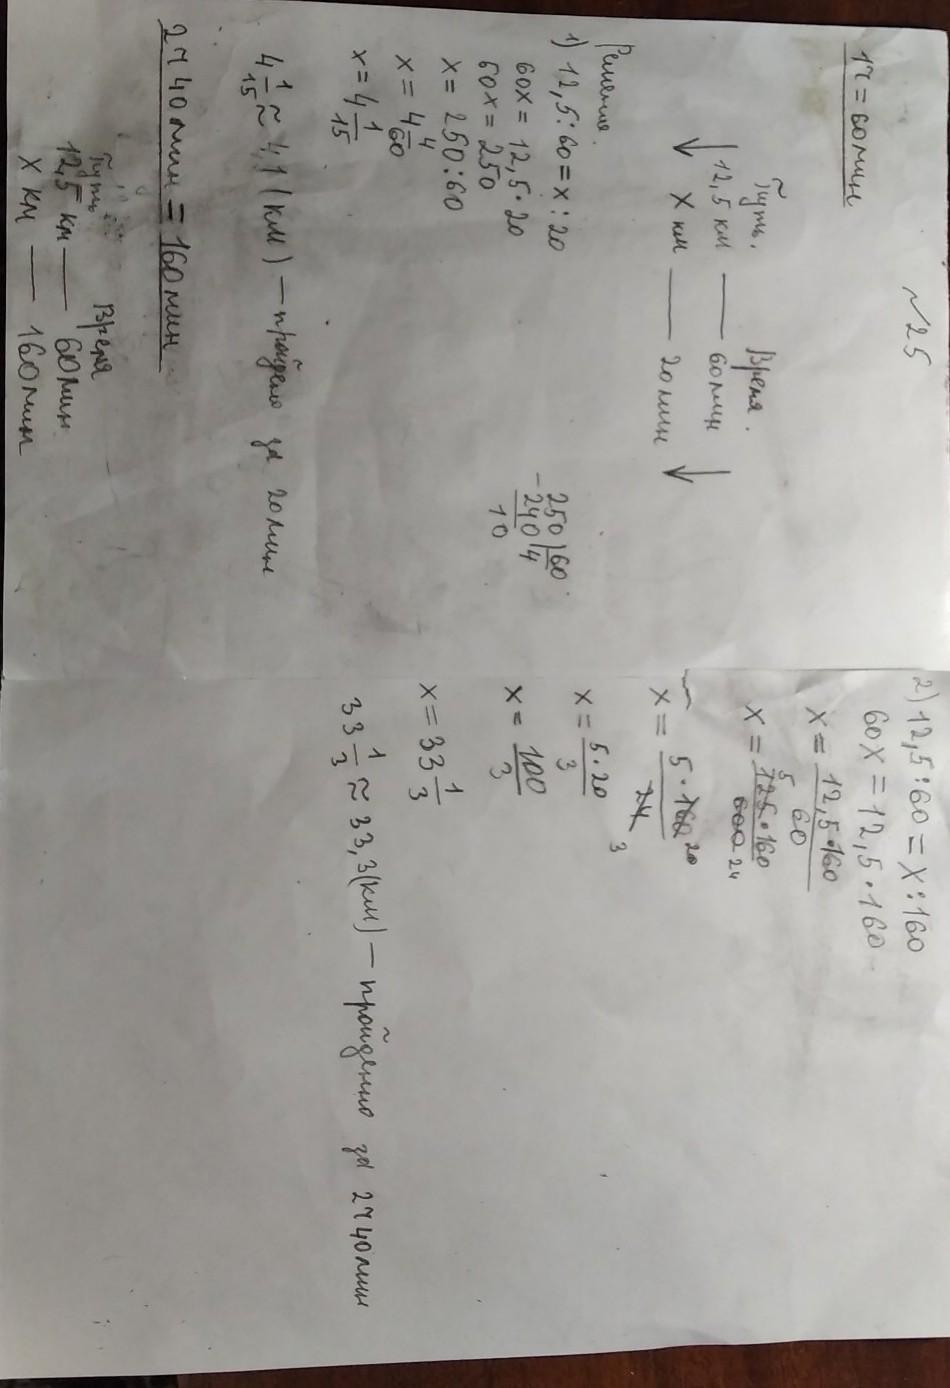 №25
1ч = 60мин
Путь. Время.
↓ 12,5 км — 60мин ↓
x км — 20мин
Решение.
1) 12,5:60 = x:20
60x = 12,5·20
60x = 250
x = 250:60
x = 4 4/60
x = 4 1/15
250 | 60
-240 | 4
10
4 1/15 ≈ 4,1 (км) — пройдено за 20мин
2ч 40мин = 160мин
Путь Время
12,5 км — 60мин
x км — 160мин
2) 12,5:60 = x:160
60x = 12,5·160
x = 12,5·160/60
x = 5 125·160/600 24
x = 5·160 20/24 3
x = 5·20/3
x = 100/3
x = 33 1/3
33 1/3 ≈ 33,3(км) — пройденно за 2ч 40мин